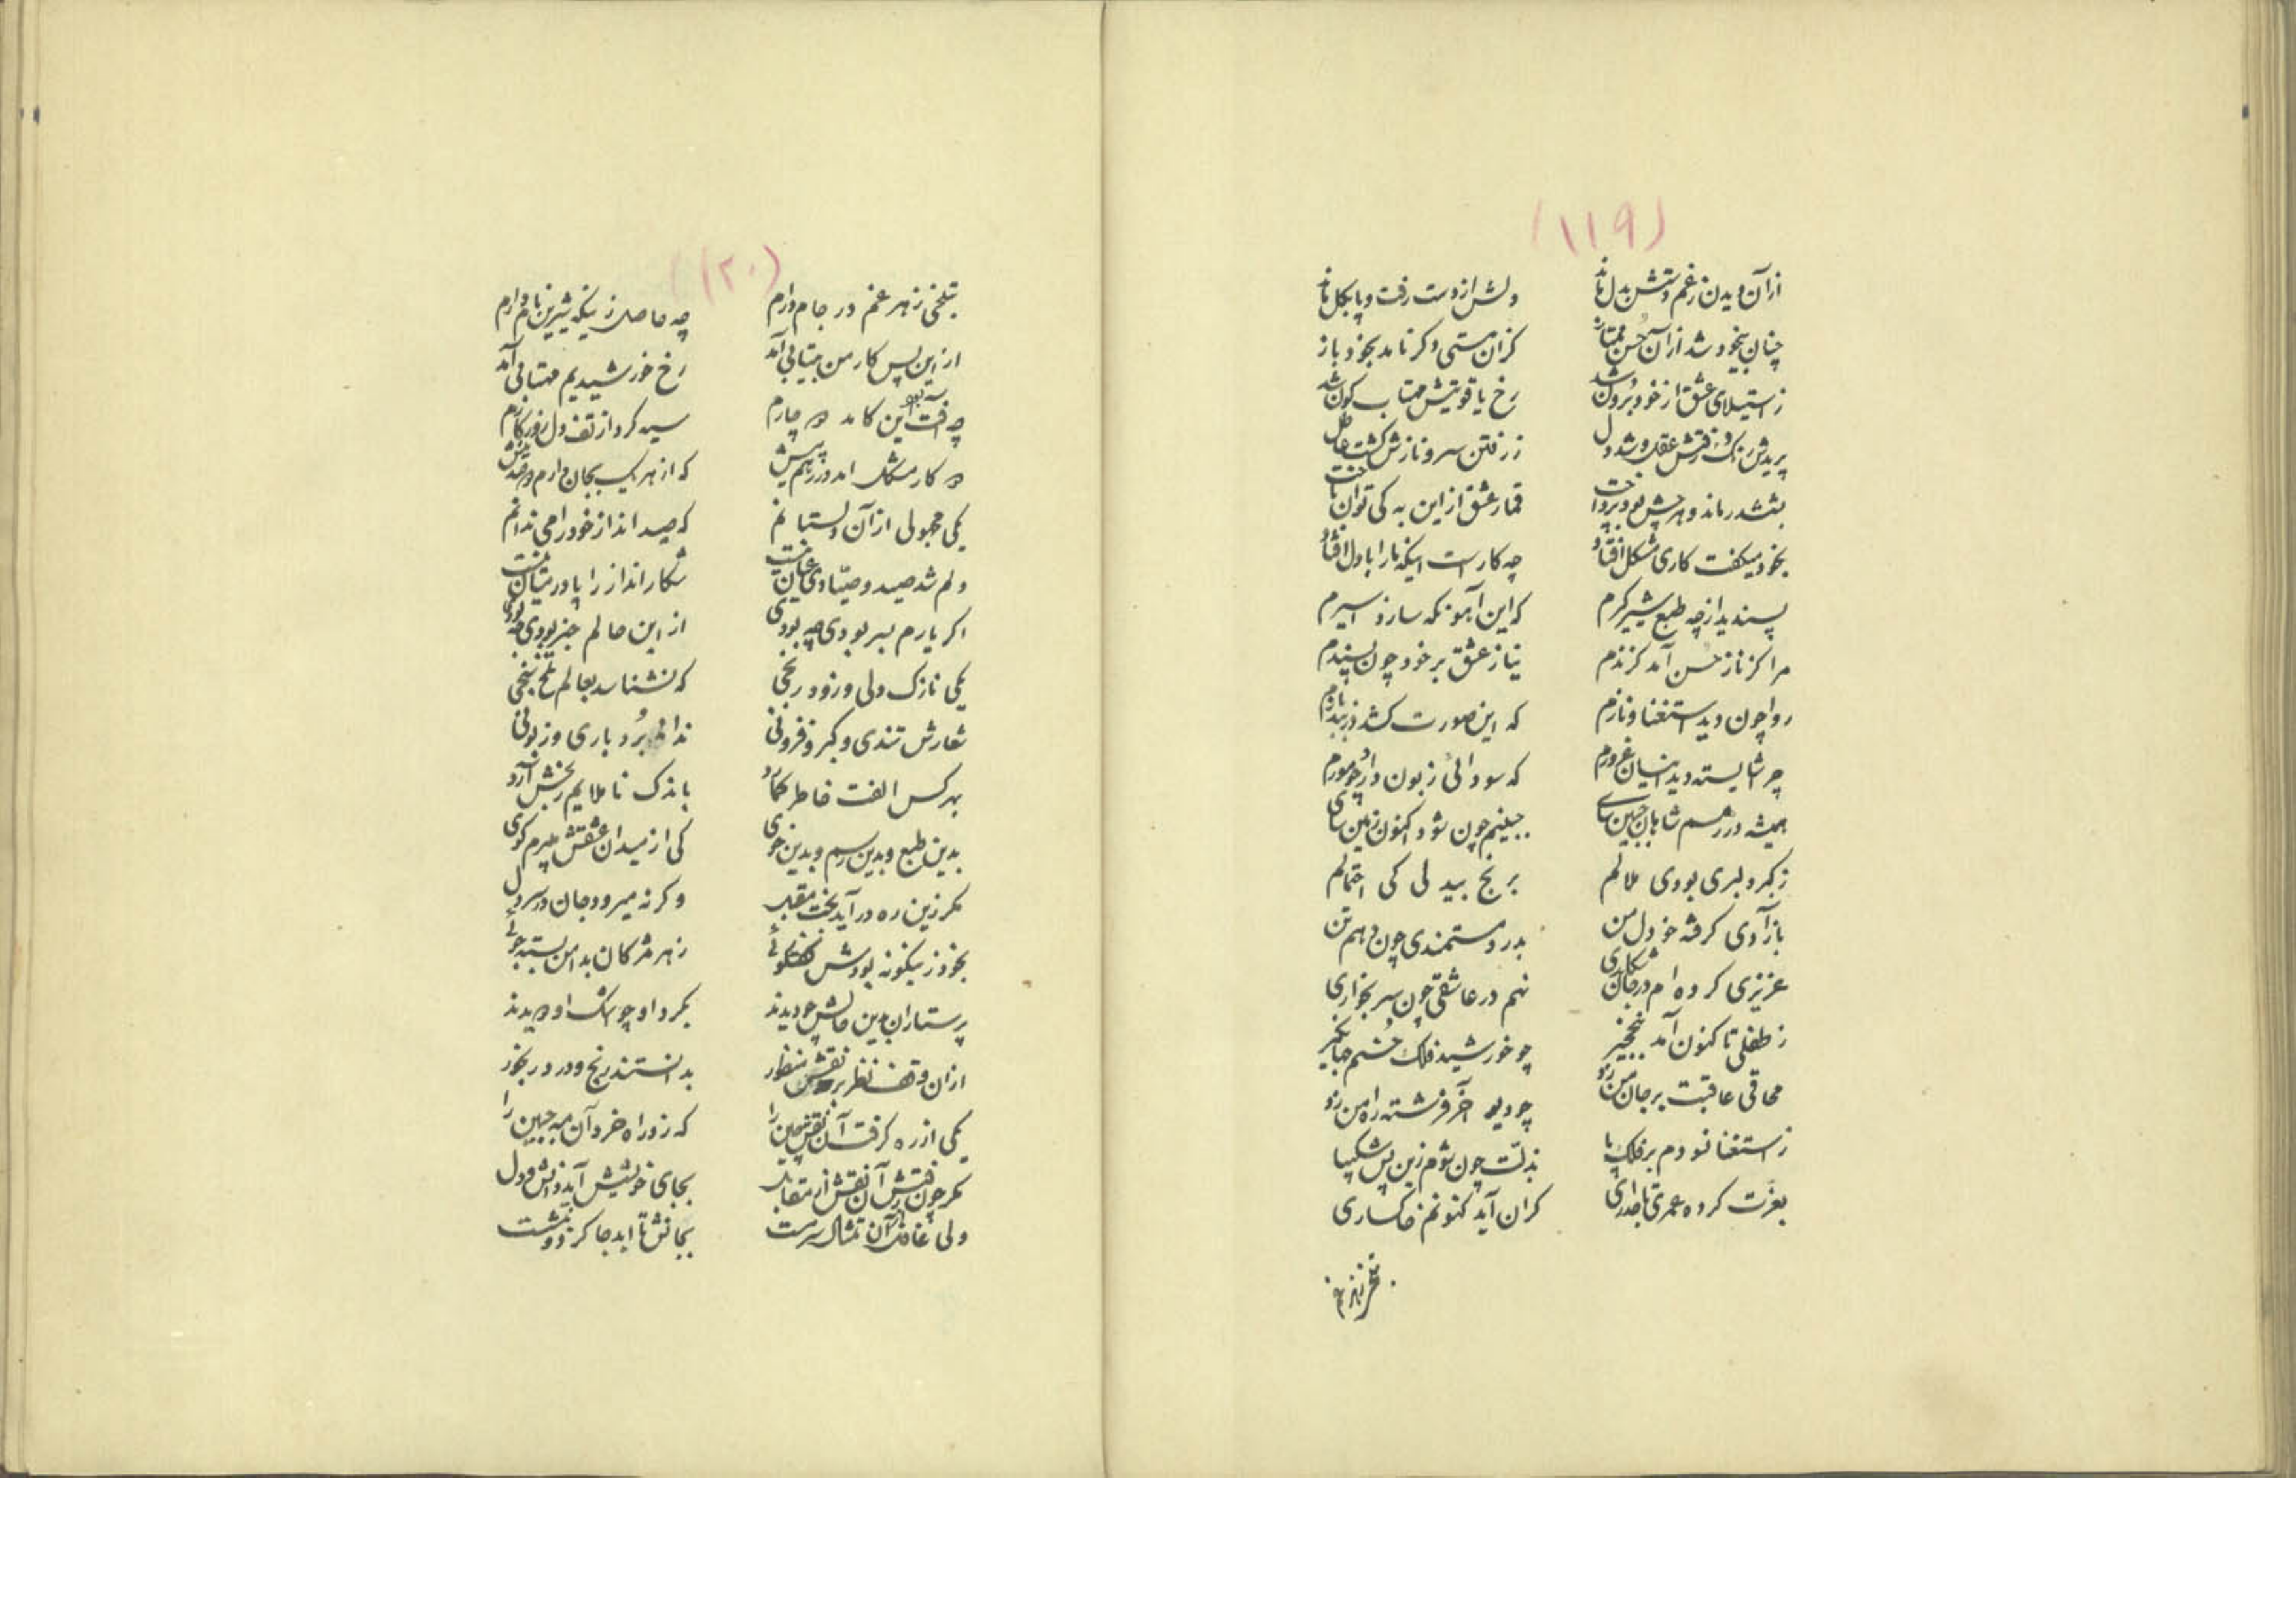 (۱۱۹)
ازآن دیدن زغم دستش بدل ماند دلش از دست رفت و پا بگل ماند
چنان بیخود شد ازآن حسن ممتاز کزان مستی دگر نامد بخود باز
زاستیلای عشق از خود برون شد رخ یاقوتیش مهتاب کون شد
پریدش رنک و رفتش عقل و شد دل ز رفتن سرو نازش کشت عاطل
بششدر ماند و هرچش بود پرداخت قمار عشق ازاین به کی توان باخت
بخود میکفت کاری مشکل افتاد چه کار است اینکه مارا با دل افتاد
پسندید ازچه طبع شیر کرم که این آهو نکه سازد اسیرم
مرا کز ناز حسن آمد کزندم نیاز عشق برخود چون پسندم
روا چون دید استغنا و نازم که این صورت کشد
چرا شایسته دید اینسان غرورم که سودائی زبون دارد چو مورم
همیشه در رهم شاهان جبین سای جبینم چون شود اکنون زمین سای
زکبر دلبری بودی ملالم برنج بیدلی کی احتمالم
بآزادی کرفته خو دل من بدرد مستمندی چون دهم تن
عزیزی کرده ام در جان شکاری نهم در عاشقی چون سر بخواری
زطفلی تا کنون آمد چو خورشید فلک حسنم جهانکیر
محاقی عاقبت برجان من زد چو دیو آخر فرشته راه من زد
زاستغنا نسودم بر فلک پا بذلت چون شوم زین پس شکیبا
بعزت کرده عمری تاجداری کران آید کنونم خاکساری
(۱۲۰)
بتلخی زهر غم در جام دارم چه حاصل زینکه شیرین نام دارم
ازین پس کار من بیتابی آمد رخ خورشیدیم مهتابی آمد
چه آفت بود این کامد سیه کرد از تف دل روزکارم
دو کار مشکل آمد در رهم پیش که از هر یک بجان دارم دوصد نیش
یکی مجهولی ازآن دلستانم که صید انداز خود را می ندانم
دلم شد صید و صیادی عیان نیست شکار انداز را پا درمیان نیست
اکر یارم ببر بودی چه بودی ازاین حالم خبر بودی چه بودی
یکی نازک دلی و زود رنجی که نشناسد بعالم تلخ سنجی
شعارش تندی و کبر و فزونی نداند بردباری و زبونی
بهر کس الفت خاطر کمارد باندک ناملایم رنجش آرد
بدین طبع و بدین رسم و بدین خوی کی از میدان عشقش میبرم کوی
مکر زین ره درآید بخت مقبل وکرنه میرود جان در سر دل
بخود زینکونه بودش کفتکوئی زهر مژکان بدامن بسته جوئی
پرستاران بدین حالش چو دیدند بکرد او چو اشک او دویدند
ازان وقف نظر بر نقش منظور بدانستند رنج و درد رنجور
یکی از ره کرفت آن نقش چین را که زد راه خرد آن مه جبین را
مکر چون رفتش آن نقش از مقابل بجای خویش آید دانش و دل
ولی غافل که آن تمثال سرمست بجانش تا ابد جا کرده